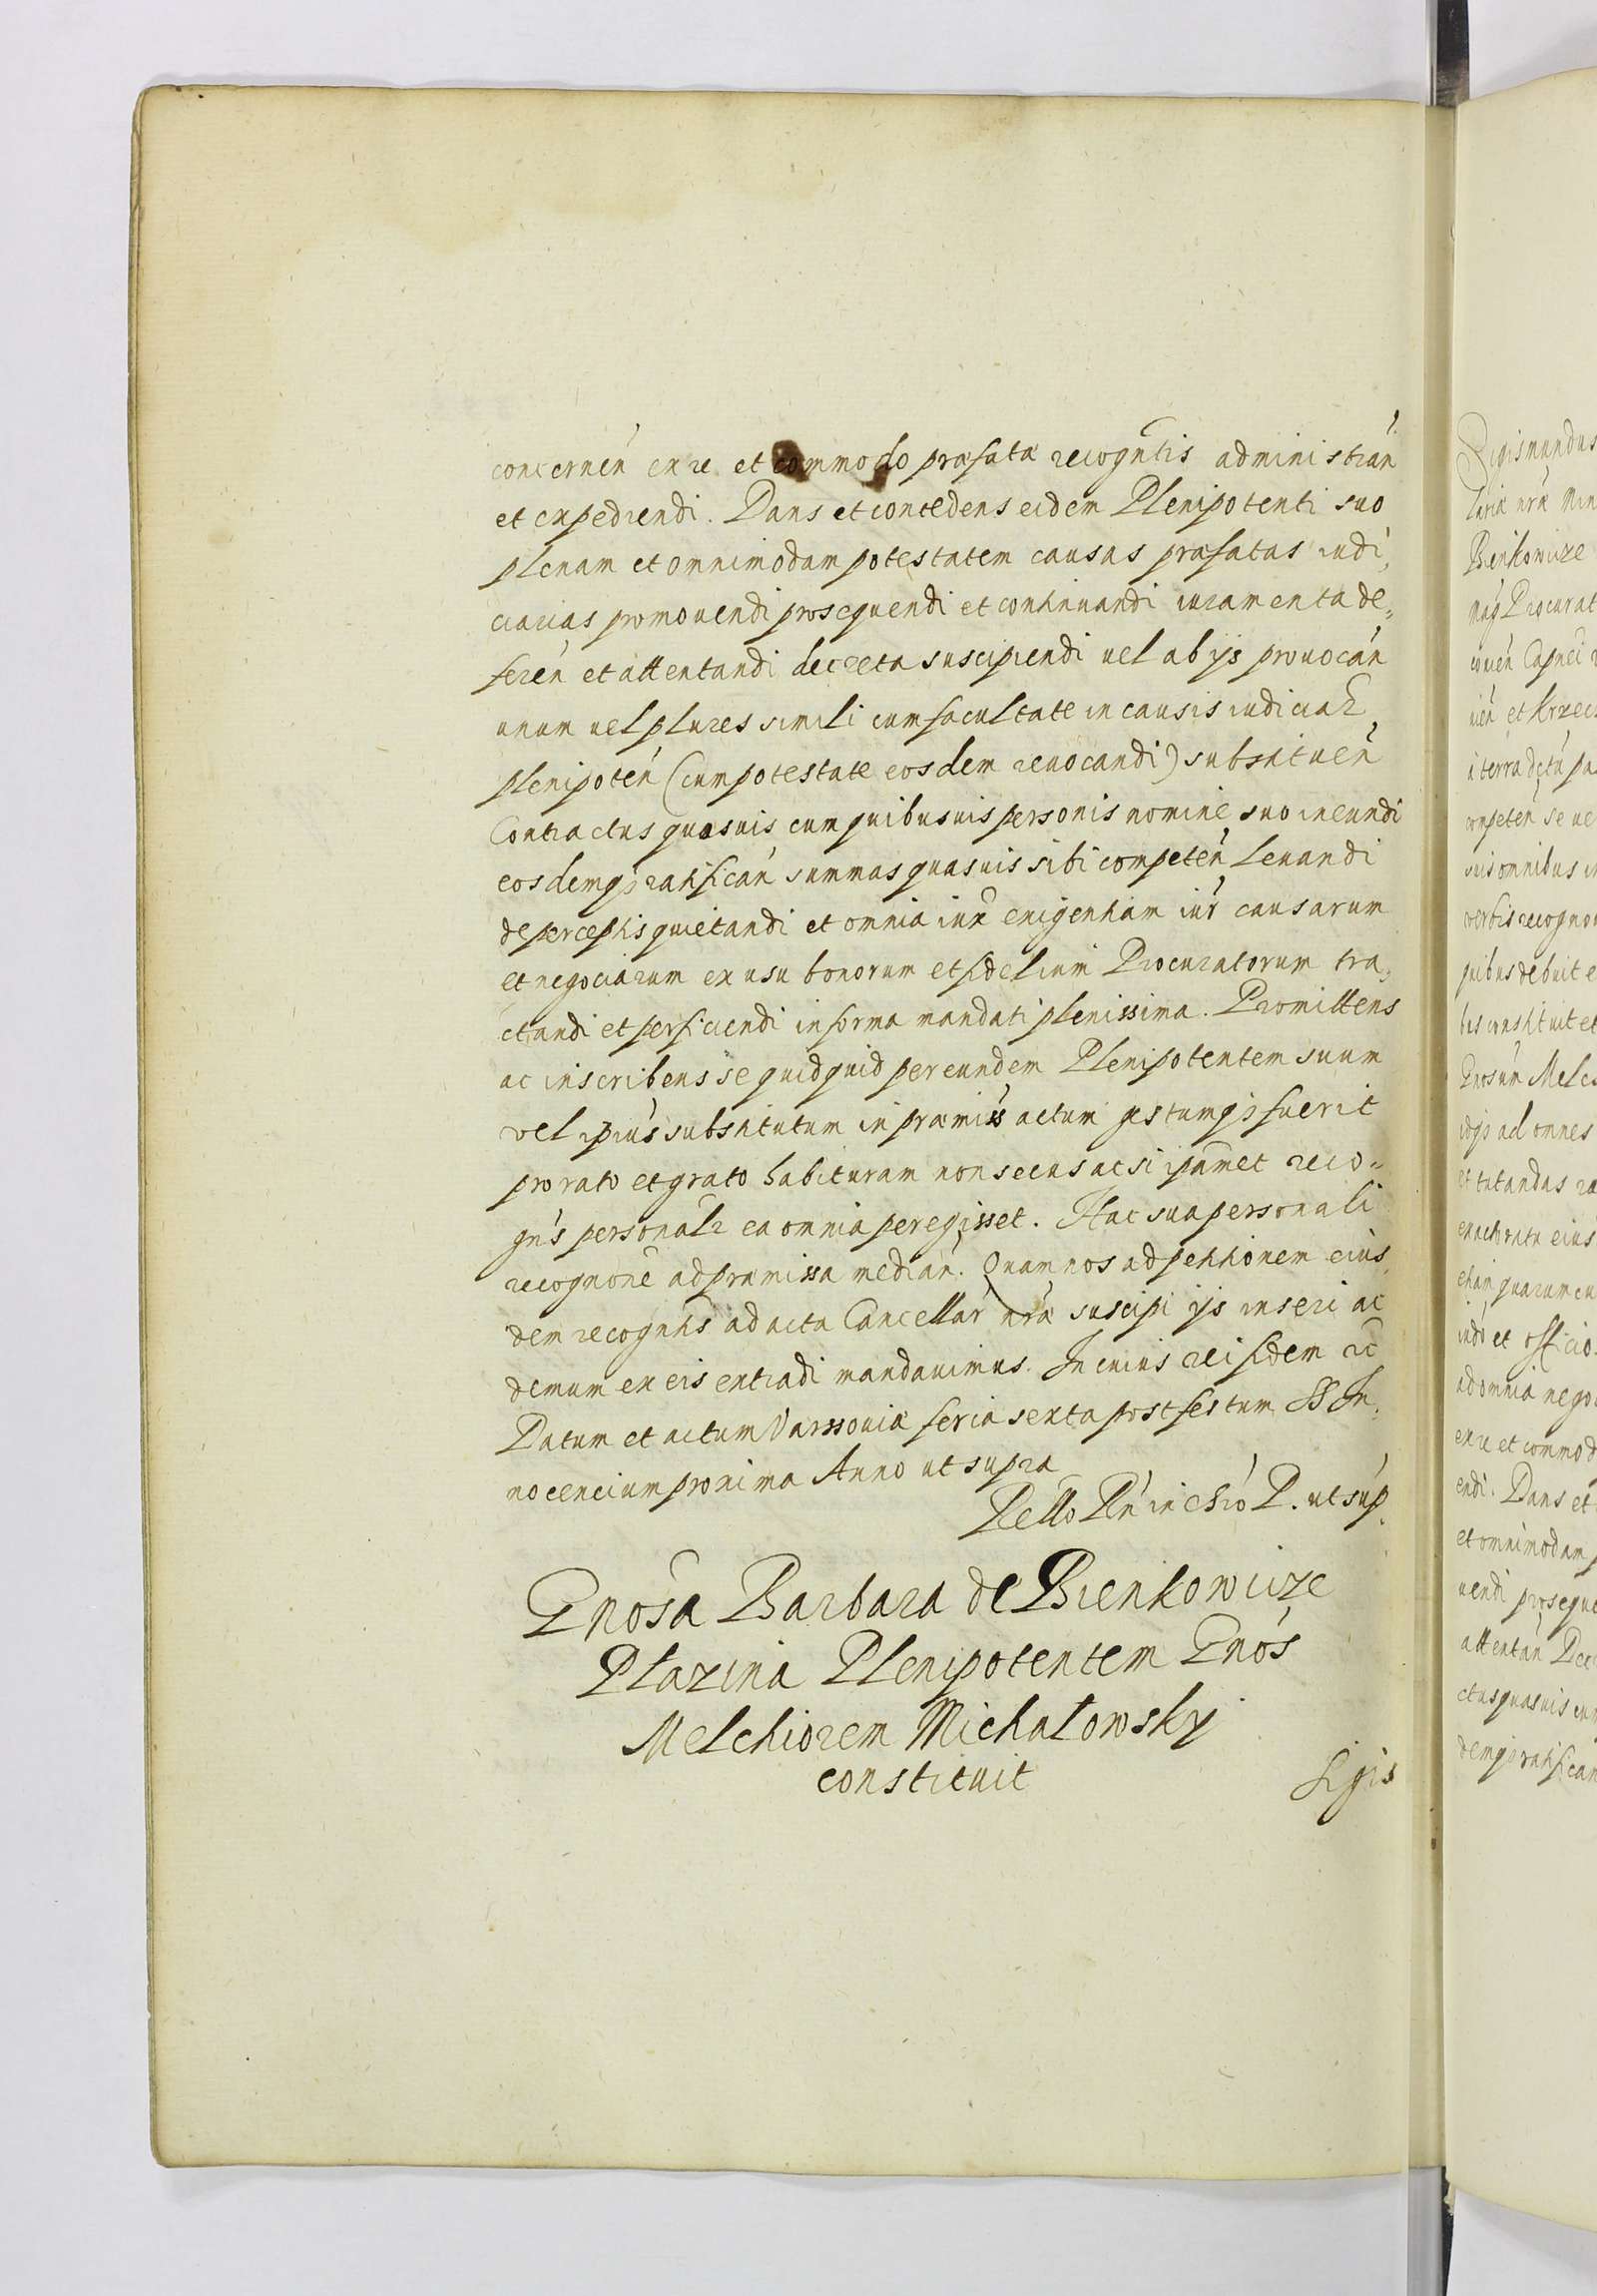 concernen ex re et commodo præfatæ recogntis administran
et expediendi. Dans et concedens eidem Plenipotenti suo
plenam et omnimodam potestatem causas præfatas iudi,
ciarias promouendi prosequendi et continuandi iuramenta de,,
feren et attentandi decreta suscipiendi uel ab ijs prouocan
unum uel plures simili cum facultate in causis iudicial
plenipoten (cum potestate eosdem reuocandi) substituen
Contractus quosuis cum quibusuis personis nomine suo ineundi
eosdemq3 ratifican summas quasuis sibi competen leuandi
de perceptis quietandi et omnia iux exigentiam iur causarum
et negociorum ex usu bonorum et fidelium Procuratorum tra,
ctandi et perficiendi in forma mandati plenissima. Promittens
ac inscribens se quidquid per eundem Plenipotentem suum
vel ipius substitutum in præmiss actum gestumq3 fuerit
pro rato et grato habituram non secus ac si ipamet reco=
gns personalr ea omnia peregisset. Hac sua personali
recognone ad præmissa median. Quam nos ad petitionem eius,
dem recogntis ad acta Cancellar nræ suscipi ijs inseri ac
demum ex eis extradi mandauimus. In cuius rei fidem &c
Datum et actum Varssouiæ feria sexta post festum SS In,
nocencium proxima Anno ut supra
Rello Rn in chro P. ut sup.
Gnosa Barbara de Bienkowicze
Płazina Plenipotentem Gnos
Melchiorem Michałowsky
constituit
Sigis
Sigismundus
Bienkowicze
Gnosum Melc
ad omnes
et tutandas
et officio
ad omnia nego
ex re et commod
endi. Dans et
et omnimodam
uendi proseque
attentan Dec
ctus quasuis cum
demq3 ratifican